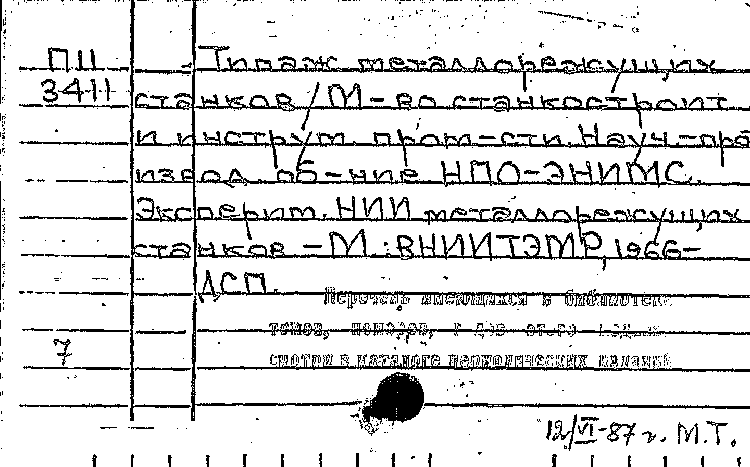 П11
3411
Типаж металлорежущих
станков / М-во станкостроит.
и инструм. пром-сти. Науч.-про
извод. об-ние НПО-ЭНИМС.
Эксперим. НИИ металлорежущих
станков. – М.: ВНИИТЭМР, 1966–
ДСП.
Перечень имеющихся в библиотеке
томов, номеров, годов этого издания
смотри в каталоге периодических изданий
7
12/VI-87 г. М.Т.